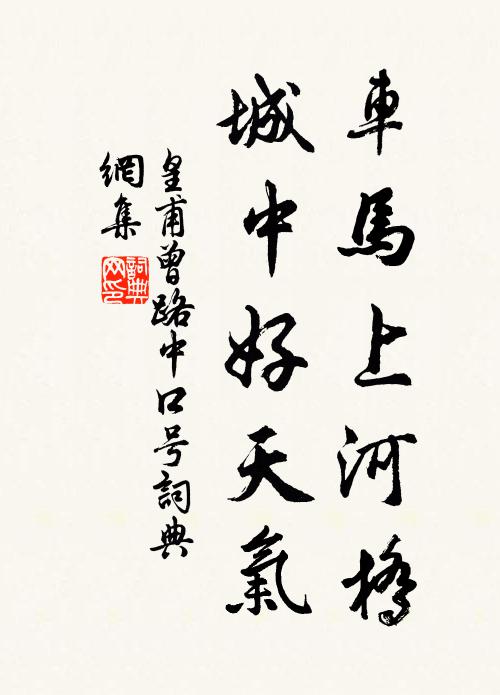 車馬上河橋
城中好天氣
皇甫曾路中口号詞典
網集
詞典
网印